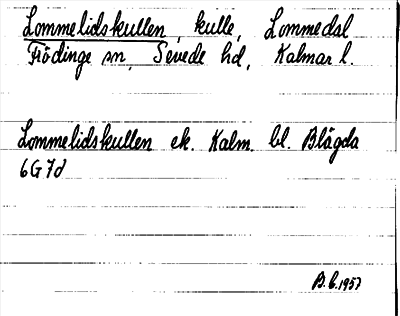 Lommelidskullen, kulle, Lommedsl
Frödinge sn, Sevede hd, Kalmar l.
Lommelidskullen ek. Kalm. bl. Blägda
6G7d
B.b.1957